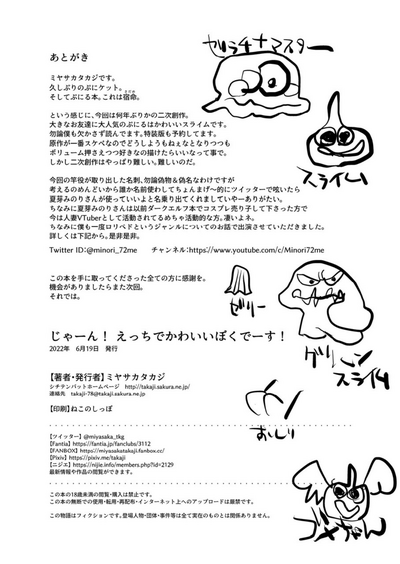 あとがき
ミヤサカタカジです。
久しぶりのぷにケット。
そしてぷにる本。これは宿命。
さだめ
という感じに、今回は何年ぶりかの二次創作。
大きなお友達に大人気のぷにるはかわいいスライムです。
勿論僕も欠かさず読んでます。特装版も予約してます。
原作が一番スケベなのでどうしようもねぇなとなりつつも
ボリューム押さえつつ好きなの描けたらいいなって事で。
しかし二次創作はやっぱり難しい。難しいのだ。
今回の竿役が取り出した名刺、勿論偽物&偽名なわけですが
考えるのめんどいから誰か名前使わしてちょんまげ〜的にツイッターで呟いたら
夏芽みのりさんが使っていいよと名乗り出てくれましていやーありがたい。
ちなみに夏芽みのりさんは以前ダークエルフ本でコスプレ売り子して下さった方で
今は人妻VTuberとして活動されてるめちゃ活動的な方。凄いよネ。
ちなみに僕も一度ロリペドというジャンルについてのお話で出演させていただきました。
詳しくは下記から。是非是非。
Twitter ID:@minori_72me チャンネル:https://www.youtube.com/c/Minori72me
この本を手に取ってくださった全ての方に感謝を。
機会がありましたらまた次回。
それでは。
じゃーん! えっちでかわいいぼくでーす!
2022年 6月19日 発行
【著者・発行者】ミヤサカタカジ
シチテンバットホームページ http://takaji.sakura.ne.jp/
連絡先 takaji-78@takaji.sakura.ne.jp
【印刷】ねこのしっぽ
【ツイッター】@miyasaka_tkg
【Fantia】https://fantia.jp/fanclubs/3112
【FANBOX】https://miyasakatakaji.fanbox.cc/
【Pixiv】https://pixiv.me/takaji
【ニジエ】https://nijie.info/members.php?id=2129
最新情報や作品の閲覧ができます。
この本の18歳未満の閲覧・購入は禁止です。
この本の無断での使用・転用・再配布・インターネット上へのアップロードは厳禁です。
この物語はフィクションです。登場人物・団体・事件等は全て実在のものとは関係ありません。
ゼラチナマスター
スライム
ゼリー
グリーン
スライム
おしり